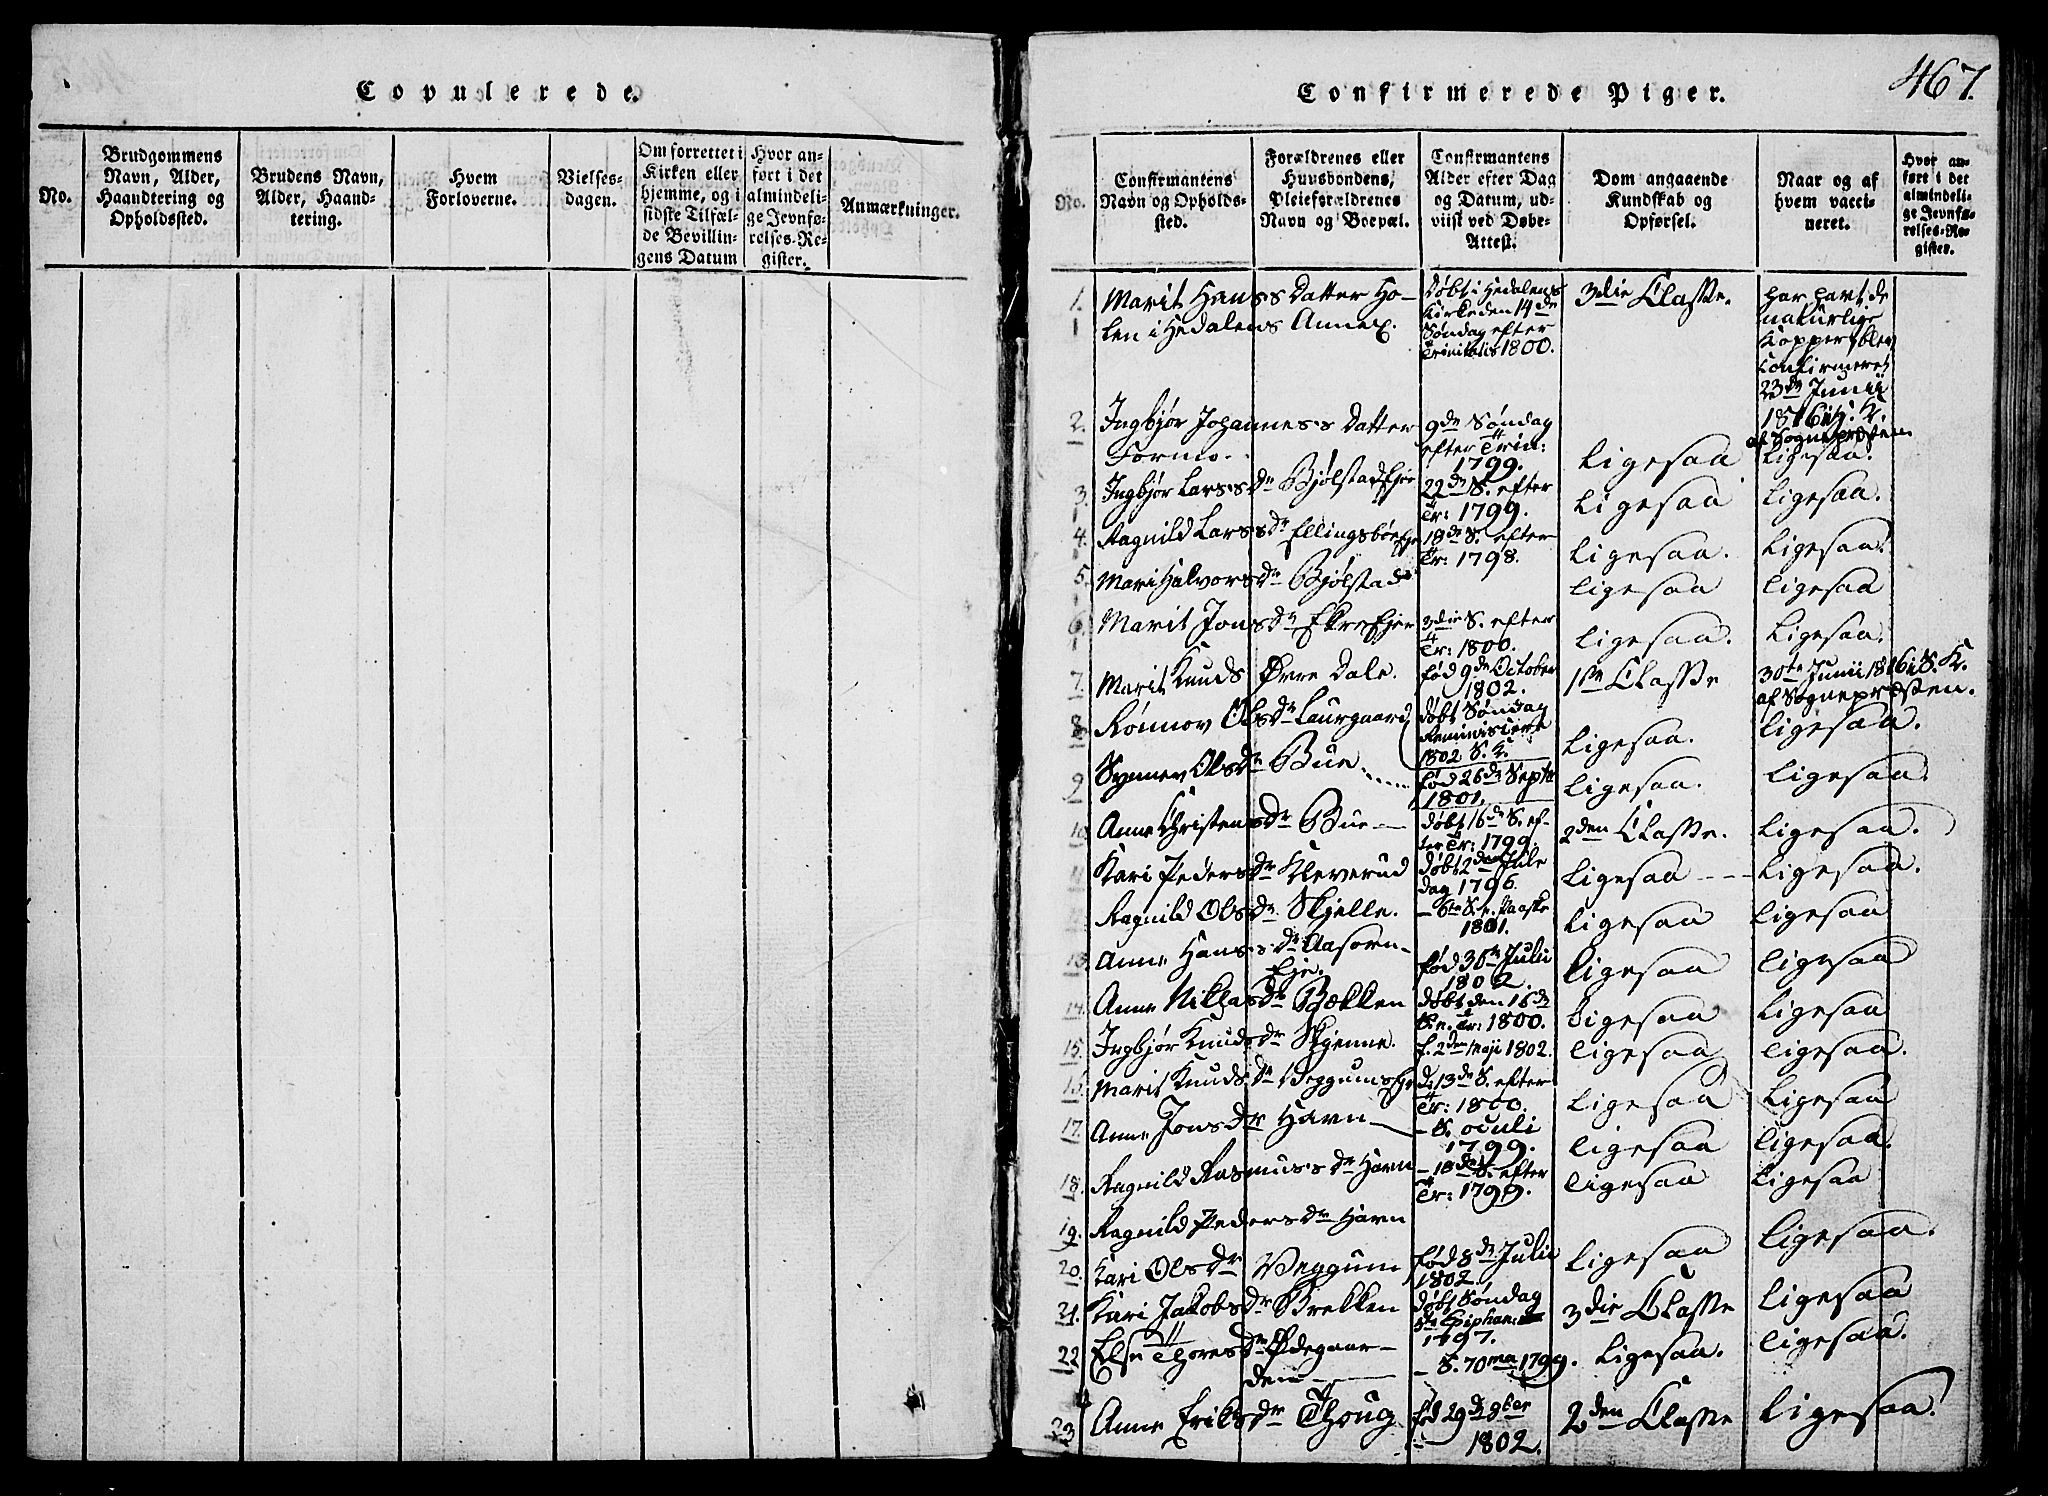 Copulerede.
No.
Brudgommens Navn, Alder, Haandtering og Opholdssted.
Brudens Navn, Alder, Haandtering.
Hvem Forloverne.
Vielsesdagen.
Om forrettet i Kirken eller hjemme, og i sidste Tilfælde Bevillingens Datum
Hvor anført i det almindelige Jevnførelses-Register.
Anmærkninger.
467.
Confirmerede Piger.
No.
Confirmantens Navn og Opholdssted.
Forældrenes eller Huusbondens, Pleieforældrenes Navn og Boepæl.
Confirmantens Alder efter Dag og Datum, udviist ved Døbe-Attest.
Dom angaaende Kundskab og Opførsel.
Naar og af hvem vaccineret.
Hvor anført i det almindelige Jevnførelses-Register.
1. Marit Hans Datter Ho-
len i Hedalens Annex.
Døbt i Hedalens
Kirke den 14de
Søndag efter
Trinitatis 1800.
3die Classe.
har havt de
naturlige
Kopper, blev
Confirmeret
23de Junii
1816 i H. K.
af Sognepræsten
2. Ingbjør Johannes's Datter
Formo.
9de Søndag
efter Trin:
1799.
ligesaa
ligesaa.
3. Ingbjør Lars's Dr Bjølstad Eje
22de S. efter
Tr: 1799.
ligesaa
ligesaa.
4. Ragnild Lars's Dr Ellingsbøe Eje
18de S. efter
Tr: 1798.
ligesaa.
ligesaa.
5. Mari Halvors Dr Bjølstad
ligesaa
ligesaa
6. Marit Jons Dr Ekre Ejer
3die S. efter
Tr: 1800.
ligesaa.
ligesaa.
7. Marit Knuds Øvre Dale.
fød 9de October
1802.
1ste Classe
30te Junii 1816 i S. K.
af Sognepræsten.
8. Rønnov Ols Dr Laurgaard
døbt Søndag
Reminiscere
1802 S. K.
ligesaa.
ligesaa.
9. Synnev Ols Dr Bue
fød 26de Septr
1801.
ligesaa.
ligesaa.
10. Anne Christens Dr Bue
døbt 16de S. ef-
ter Tr: 1799.
2den Classe.
ligesaa.
11. Kari Peders Dr Kleverud
døbt 2den Jule
dag 1796.
ligesaa
ligesaa.
Ragnild Ols Dr Skjelle.
- 5te S. e. Paaske
1801.
ligesaa
ligesaa
13. Anne Hans's Dr Aasorn-
Eje.
fød 30te Julii
1802.
ligesaa
ligesaa
14. Anne Niklas Dr Bækken
døbt den 16de
S. e. Tr: 1800.
ligesaa
ligesaa
15. Ingbjør Knuds Dr Skjenne.
f. 2den Maji 1802.
ligesaa
ligesaa.
Marit Knuds Dr Veggums Eje
d. 13de S. efter
Tr: 1800.
ligesaa
ligesaa
17. Anne Jons Dr Havn
- S. oculi
1799.
ligesaa
ligesaa.
18. Ragnild Rasmus's Dr Havn
- 18de S. efter
Tr: 1799.
ligesaa
ligesaa
19. Ragnild Peders Dr Havn
20. Kari Ols Dr Veggum
fød 8de Julii
1802.
ligesaa
ligesaa.
21. Kari Jakobs Dr Brekken
døbt Søndag
5te Epiphan:
1797.
3die Classe
ligesaa
22 Else Thores Dr Ødegaar-
den
- S. 70ma 1799.
ligesaa.
ligesaa.
23 Anne Eriks Dr Thoug
fød 29de 8ber
1802.
2den Classe
ligesaa.